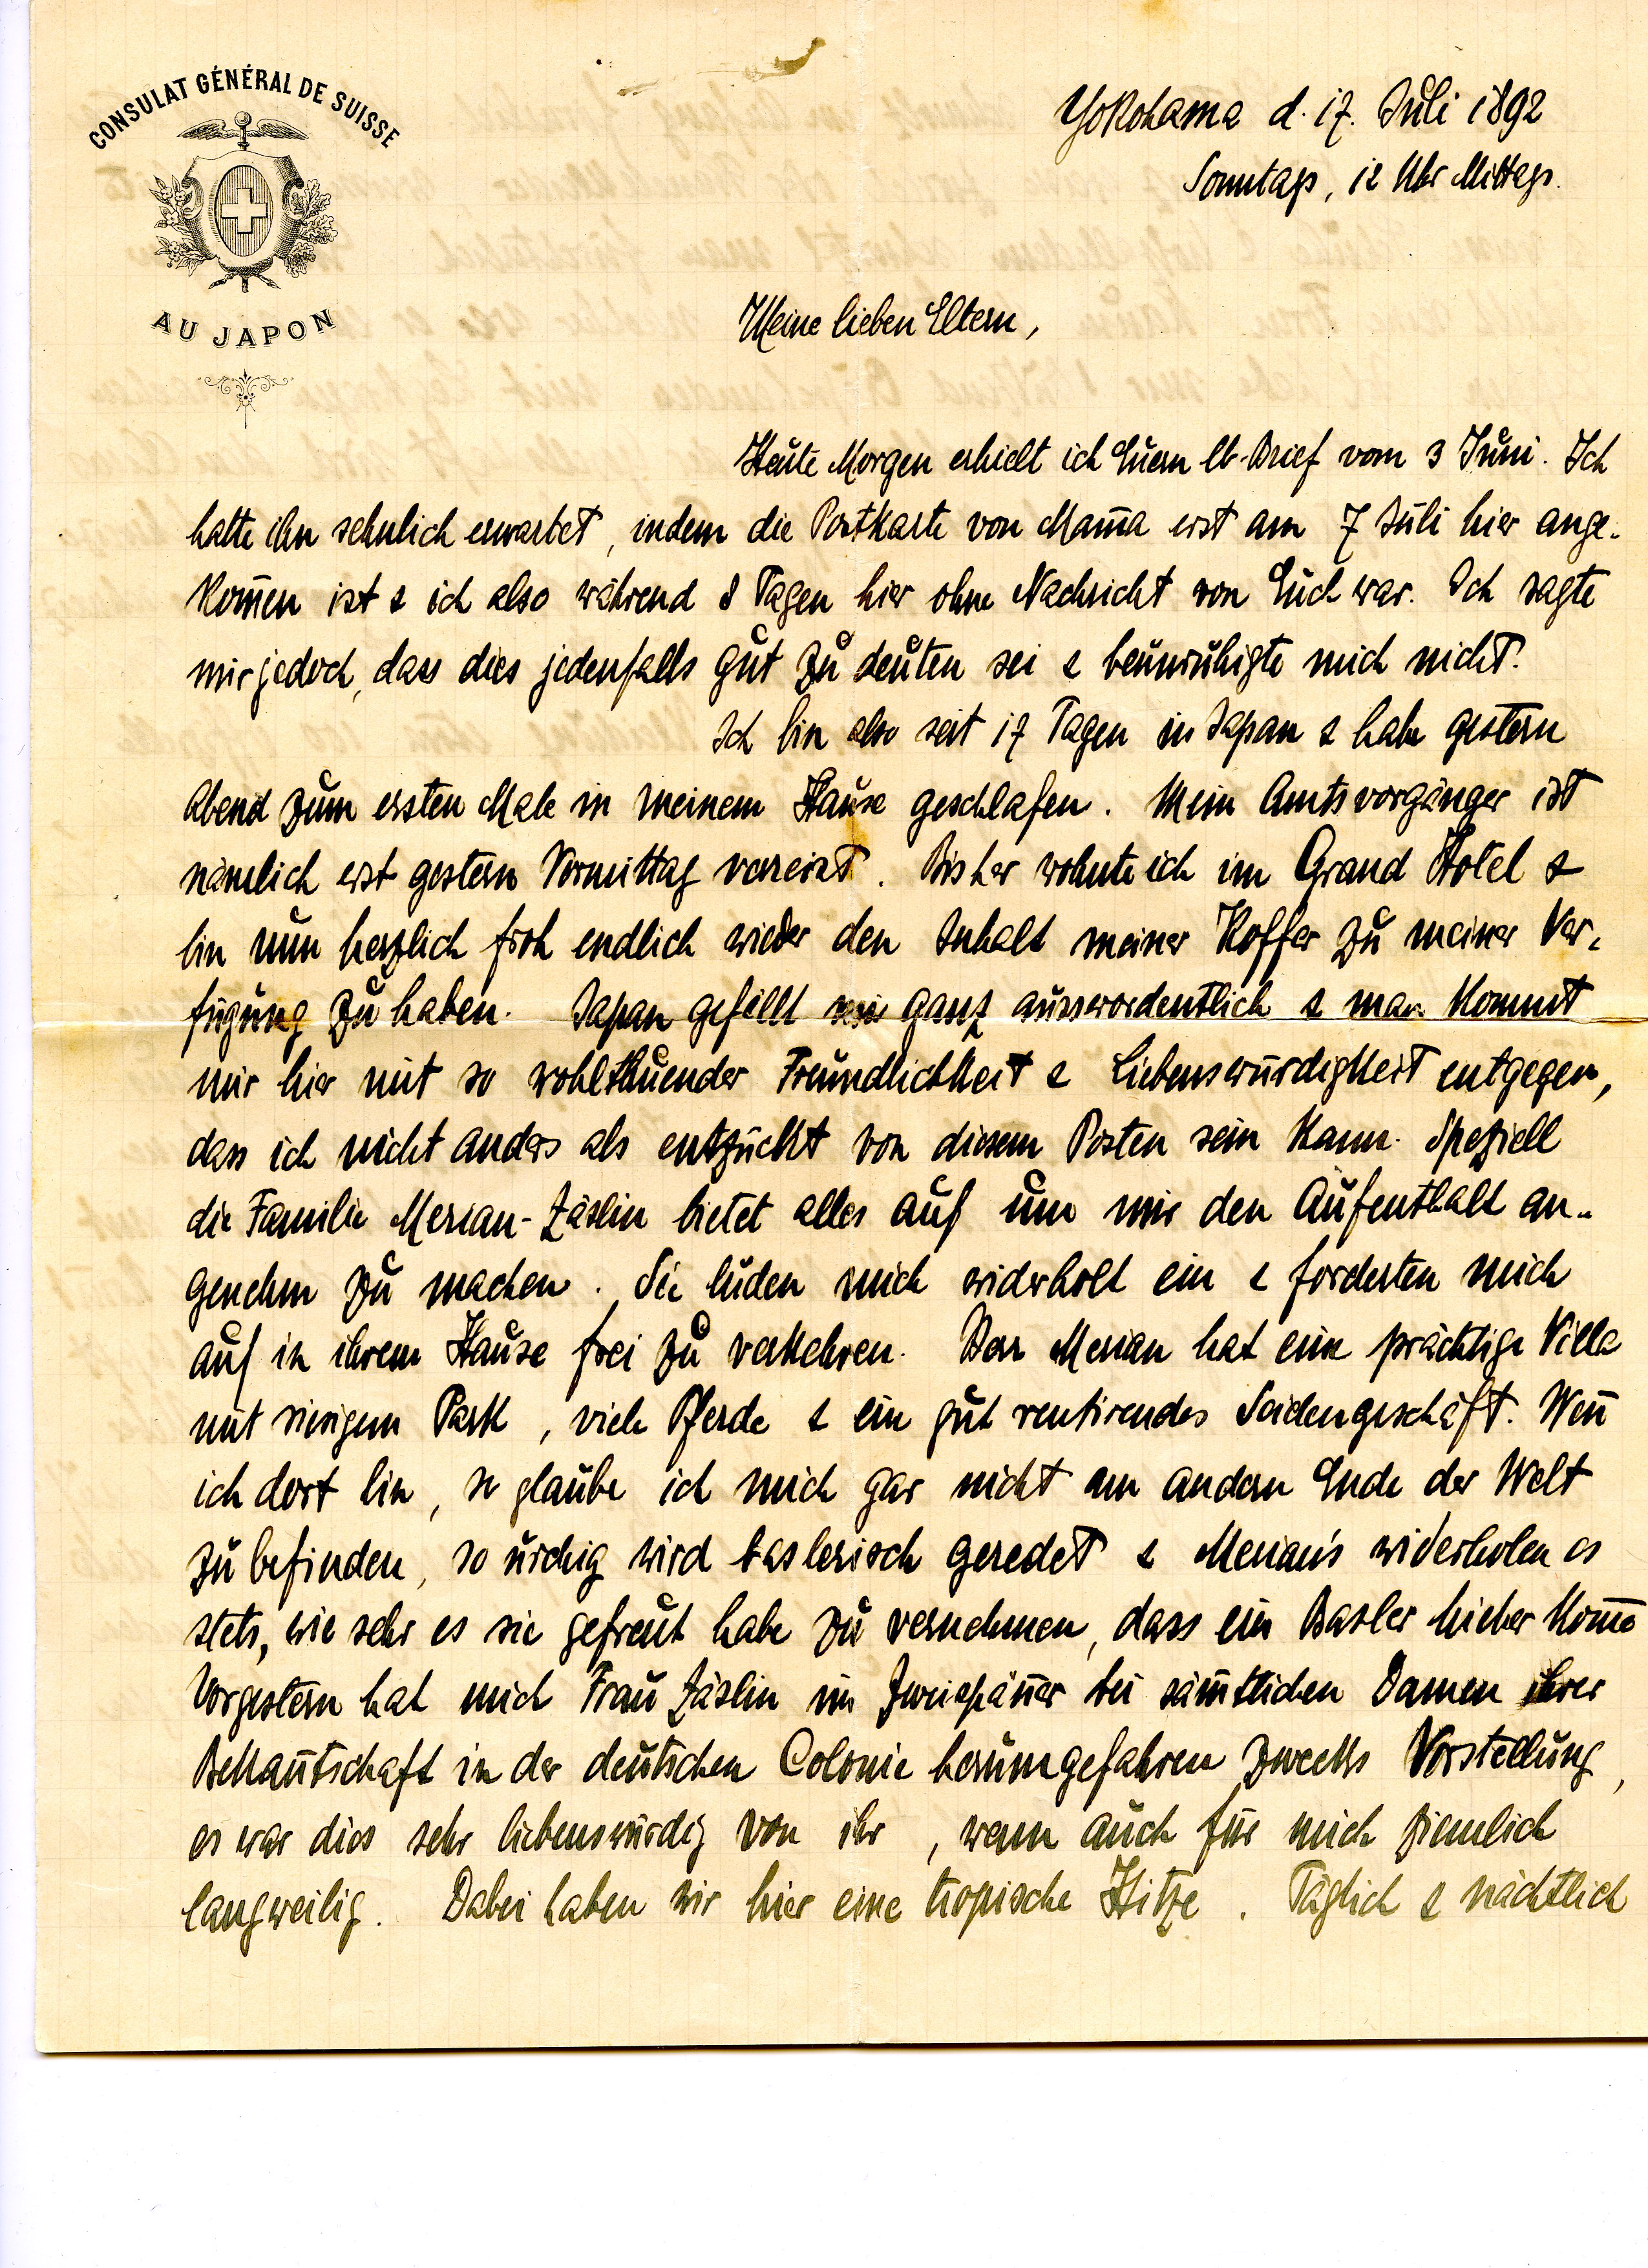 CONSULAT GÉNÉRAL DE SUISSE
AU JAPON
Yokohama d. 17. Juli 1892
Sonntags, 12 Uhr Mittags.
Meine lieben Eltern,
Heute Morgen erhielt ich Euern lb. Brief vom 3 Juni. Ich
hatte ihn sehnlich erwartet, indem die Postkarte von Mam̄a erst am 7 Juli hier ange-
kom̄en ist & ich also während 8 Tagen hier ohne Nachricht von Euch war. Ich sagte
mir jedoch, dass dies jedenfalls gut zu deuten sei & beunruhigte mich nicht.
Ich bin also seit 17 Tagen in Japan & habe gestern
Abend zum ersten Male in meinem Hause geschlafen. Mein Amtsvorgänger ist
nämlich erst gestern Vormittag verreist. Bisher wohnte ich im Grand Hotel &
bin nun herzlich froh endlich wieder den Inhalt meiner Koffer zu meiner Ver-
fügung zu haben. Japan gefällt mir ganz ausserordentlich & man kommt
mir hier mit so wohlthuender Freundlichkeit & Liebenswürdigkeit entgegen,
dass ich nicht anders als entzückt von diesem Posten sein kann. Speziell
die Familie Merian-Zäslin bietet alles auf um mir den Aufenthalt an-
genehm zu machen. Sie luden mich widerholt ein & forderten mich
auf in ihrem Hause frei zu verkehren. Herr Merian hat eine prächtige Villa
mit riesigem Park, viele Pferde & ein gut rentirendes Seidengeschäft. Wen̄
ich dort bin, so glaube ich mich gar nicht am andern Ende der Welt
zu befinden, so urchig wird baslerisch geredet & Merian's widerholen es
stets, wie sehr es sie gefreut habe zu vernehmen, dass ein Basler hieher kom̄e
Vorgestern hat mich Frau Zäslin im Zweispän̄er bei säm̄tlichen Damen ihrer
Bekan̄tschaft in der deutschen Colonie herumgefahren zwecks Vorstellung,
es war dies sehr liebenswürdig von ihr, wenn auch für mich ziemlich
langweilig. Dabei haben wir hier eine tropische Hitze. Täglich & nächtlich